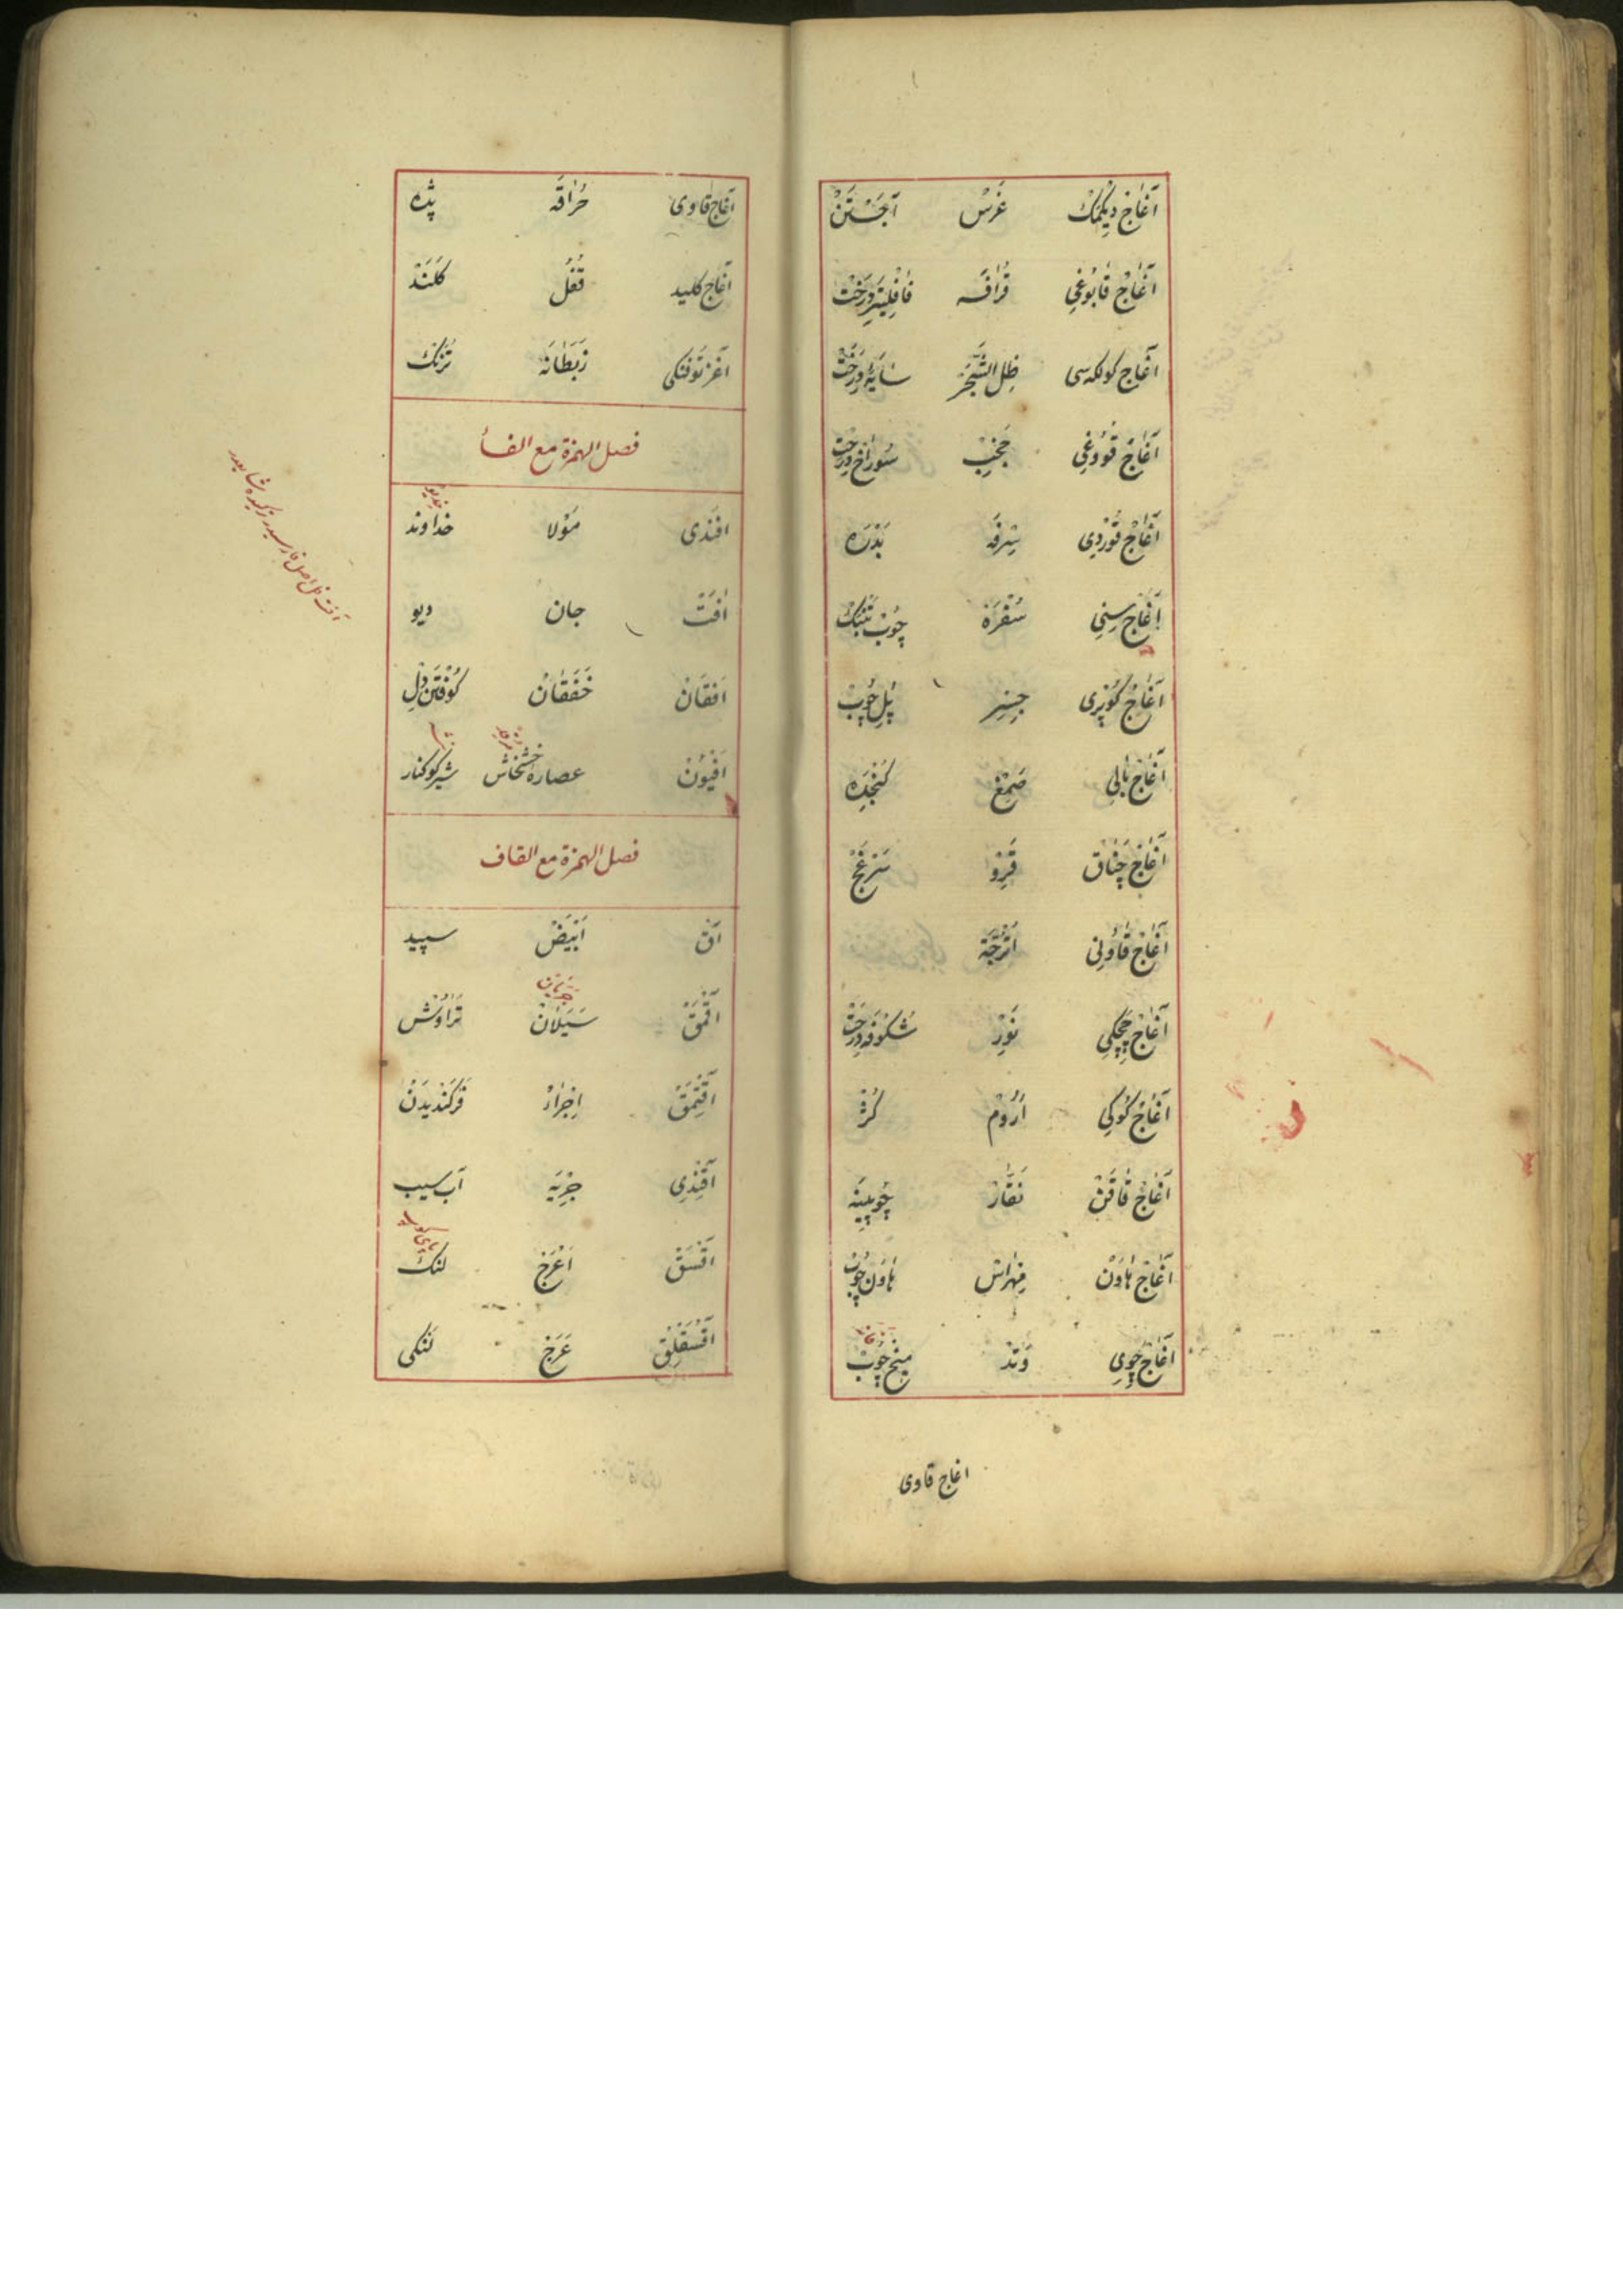 آغاج دیکمک غرس آجستن
آغاج قابوغی قرافه درخت
آغاج کولکه‌سی ظل الشجر سایهٔ درخت
آغاج قووغی سوراخ درخت
آغاج قوردی سرفه
آغاج سینی سفره چوب
آغاج کوپری جسر پل چوب
آغاج بالی صمغ کنجده
آغاج چناق قرو
آغاج قاونی اترجة
آغاج چیچکی نور شکوفهٔ درخت
آغاج کوکی اروم
آغاج قاقن نقار چوبینه
آغاج هاون مهراس هاون چوب
آغاج چوی وتد میخ چوب
اغاج قاوی
آغاج قاوی حراقه پده
آغاج کلید قفل کلند
آغز توفنکی زبطانه
فصل الهمزة مع الفأ
افندی مولا خداوند
افت جان دیو
افقان خفقان کوفتن دل
افیون عصارهٔ خشخاش شیر کوکنار
فصل الهمزة مع القاف
آق ابیض سپید
جریان
آقمق سیلان تراوش
آقتمق اجراء فرکندیدن
آقندی جریه آب سیب
آقسق اعرج لنک
آقسقلق عرج لنکی